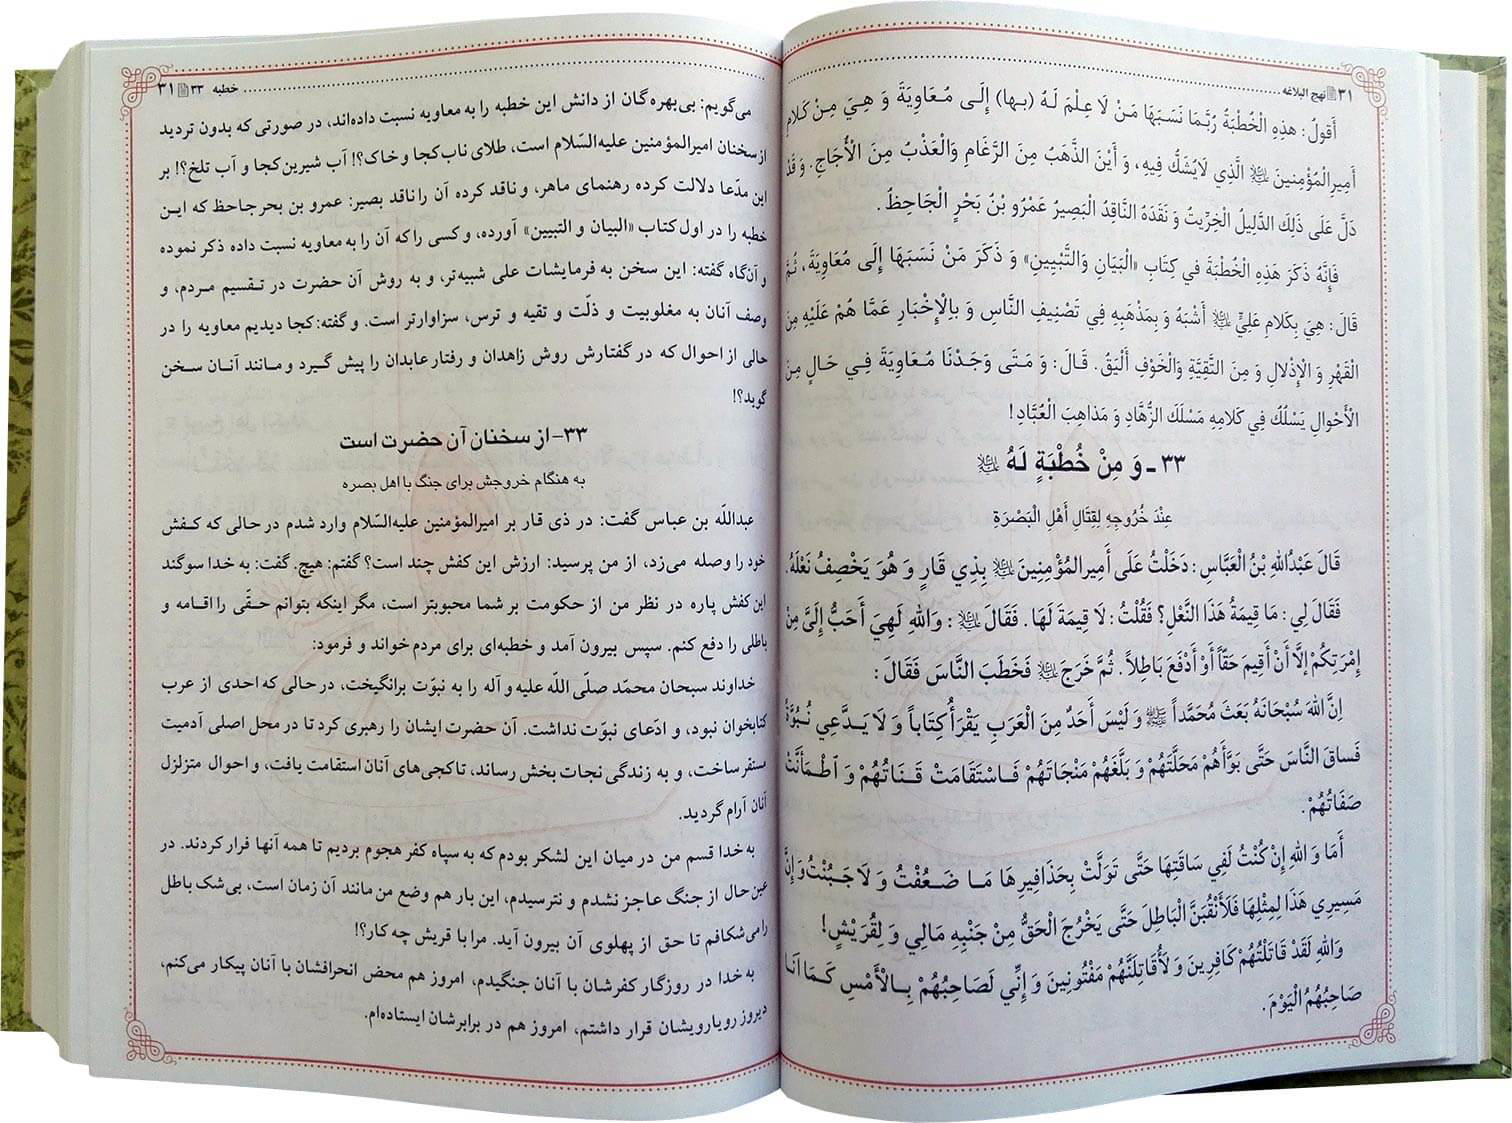 ٣١ نهج البلاغه
أَقولُ: هذِهِ الْخُطْبَةُ رُبَّما نَسَبَهَا مَنْ لَا عِلْمَ لَهُ (بها) إِلَى مُعَاوِيَةَ وَ هِيَ مِنْ كَلامِ
أَمِيرِالْمُؤْمِنِينَ ﷷ الَّذِي لَايُشَكُّ فِيهِ، وَ أَيْنَ الذَّهَبُ مِنَ الرَّغَامِ وَالْعَذْبُ مِنَ الْأُجَاجِ. وَ قَدْ
دَلَّ عَلَى ذَلِكَ الدَّلِيلُ الْخِرِّيتُ وَ نَقَدَهُ النَّاقِدُ الْبَصِيرُ عَمْرُو بْنُ بَحْرٍ الْجَاحِظُ.
فَإِنَّهُ ذَكَرَ هَذِهِ الْخُطْبَةَ في كِتَابِ «الْبَيَانِ وَالتَّبْيِينِ» وَ ذَكَرَ مَنْ نَسَبَهَا إِلَى مُعَاوِيَةَ، ثُمَّ
قَالَ: هِيَ بِكَلامِ عَلِيٍّ ﷷ أَشْبَهُ وَ بِمَذْهَبِهِ فِي تَصْنِيفِ النَّاسِ وَ بِالْإِخْبَارِ عَمَّا هُمْ عَلَيْهِ مِنَ
الْقَهْرِ وَ الْإِذْلالِ وَ مِنَ التَّقِيَّةِ وَالْخَوْفِ أَلْيَقُ. قَالَ: وَ مَتَى وَجَدْنَا مُعَاوِيَةَ فِي حَالٍ مِنَ
الْأَحْوالِ يَسْلُكُ فِي كَلامِهِ مَسْلَكَ الزُّهَّادِ وَ مَذَاهِبَ الْعُبَّادِ!
٣٣ ـ وَ مِنْ خُطْبَةٍ لَهُ ﷷ
عِنْدَ خُرُوجِهِ لِقِتَالِ أَهْلِ الْبَصْرَةِ
قَالَ عَبْدُاللهِ بْنُ الْعَبَّاسِ: دَخَلْتُ عَلَى أَمِيرِالمُؤْمِنِينَ ﷷ بِذِي قَارٍ وَ هُوَ يَخْصِفُ نَعْلَهُ.
فَقَالَ لِي: مَا قِيمَةُ هَذَا النَّعْلِ؟ فَقُلْتُ: لَا قِيمَةَ لَهَا. فَقَالَ ﷷ: وَاللهِ لَهِيَ أَحَبُّ إِلَىَّ مِنْ
إِمْرَتِكُمْ إِلَّا أَنْ أُقِيمَ حَقّاً أَوْ أَدْفَعَ بَاطِلاً. ثُمَّ خَرَجَ ﷷ فَخَطَبَ النَّاسَ فَقَالَ:
اِنَّ اللهَ سُبْحَانَهُ بَعَثَ مُحَمَّداً ﷺ وَ لَيْسَ أَحَدٌ مِنَ الْعَرَبِ يَقْرَأُ كِتَاباً وَ لَا يَدَّعِي نُبُوَّةً
فَساقَ النَّاسَ حَتَّى بَوَّأَهُمْ مَحَلَّتَهُمْ وَ بَلَّغَهُمْ مَنْجَاتَهُمْ فَاسْتَقَامَتْ قَنَاتُهُمْ وَ اطْمَأَنَّتْ
صَفَاتُهُمْ.
أَمَا وَ اللهِ إِنْ كُنْتُ لَفِي سَاقَتِهَا حَتَّى تَوَلَّتْ بِحَذَافِيرِهَا مَا ضَعُفْتُ وَ لَا جَبُنْتُ وَ إِنَّ
مَسِيرِي هَذَا لِمِثْلِهَا فَلَأَنْقُبَنَّ الْبَاطِلَ حَتَّى يَخْرُجَ الْحَقُّ مِنْ جَنْبِهِ مَالِي وَ لِقُرَيْشٍ!
وَاللهِ لَقَدْ قَاتَلْتُهُمْ كَافِرِينَ وَ لَأُقَاتِلَنَّهُمْ مَفْتُونِينَ وَ إِنِّي لَصَاحِبُهُمْ بِالْأَمْسِ كَمَا أَنَا
صَاحِبُهُمُ الْيَوْمَ.
خطبه ٣٣ ٣١
می‌گویم: بی‌بهره‌گان از دانش این خطبه را به معاویه نسبت داده‌اند، در صورتی که بدون تردید
از سخنان امیرالمؤمنین علیه‌السّلام است، طلای ناب کجا و خاک؟! آب شیرین کجا و آب تلخ؟! بر
این مدّعا دلالت کرده رهنمای ماهر، و ناقد کرده آن را ناقد بصیر: عمرو بن بحر جاحظ که این
خطبه را در اول کتاب «البیان و التبیین» آورده، و کسی را که آن را به معاویه نسبت داده ذکر نموده
و آن‌گاه گفته: این سخن به فرمایشات علی شبیه‌تر، و به روش آن حضرت در تقسیم مردم، و
وصف آنان به مغلوبیت و ذلّت و تقیه و ترس، سزاوارتر است. و گفته: کجا دیدیم معاویه را در
حالی از احوال که در گفتارش روش زاهدان و رفتار عابدان را پیش گیرد و مانند آنان سخن
گوید؟!
٣٣- از سخنان آن حضرت است
به هنگام خروجش برای جنگ با اهل بصره
عبداللّه بن عباس گفت: در ذی قار بر امیرالمؤمنین علیه‌السّلام وارد شدم در حالی که کفش
خود را وصله می‌زد، از من پرسید: ارزش این کفش چند است؟ گفتم: هیچ. گفت: به خدا سوگند
این کفش پاره در نظر من از حکومت بر شما محبوبتر است، مگر اینکه بتوانم حقّی را اقامه و
باطلی را دفع کنم. سپس بیرون آمد و خطبه‌ای برای مردم خواند و فرمود:
خداوند سبحان محمّد صلّی اللّه علیه و آله را به نبوّت برانگیخت، در حالی که احدی از عرب
کتابخوان نبود، و ادّعای نبوّت نداشت. آن حضرت ایشان را رهبری کرد تا در محل اصلی آدمیت
مستقر ساخت، و به زندگی نجات بخش رساند، تا کجی‌های آنان استقامت یافت، و احوال متزلزل
آنان آرام گردید.
به خدا قسم من در میان این لشکر بودم که به سپاه کفر هجوم بردیم تا همه آنها فرار کردند. در
عین حال از جنگ عاجز نشدم و نترسیدم، این بار هم وضع من مانند آن زمان است، بی‌شک باطل
را می‌شکافم تا حق از پهلوی آن بیرون آید. مرا با قریش چه کار؟!
به خدا در روزگار کفرشان با آنان جنگیدم، امروز هم محض انحرافشان با آنان پیکار می‌کنم،
دیروز رویارویشان قرار داشتم، امروز هم در برابرشان ایستاده‌ام.